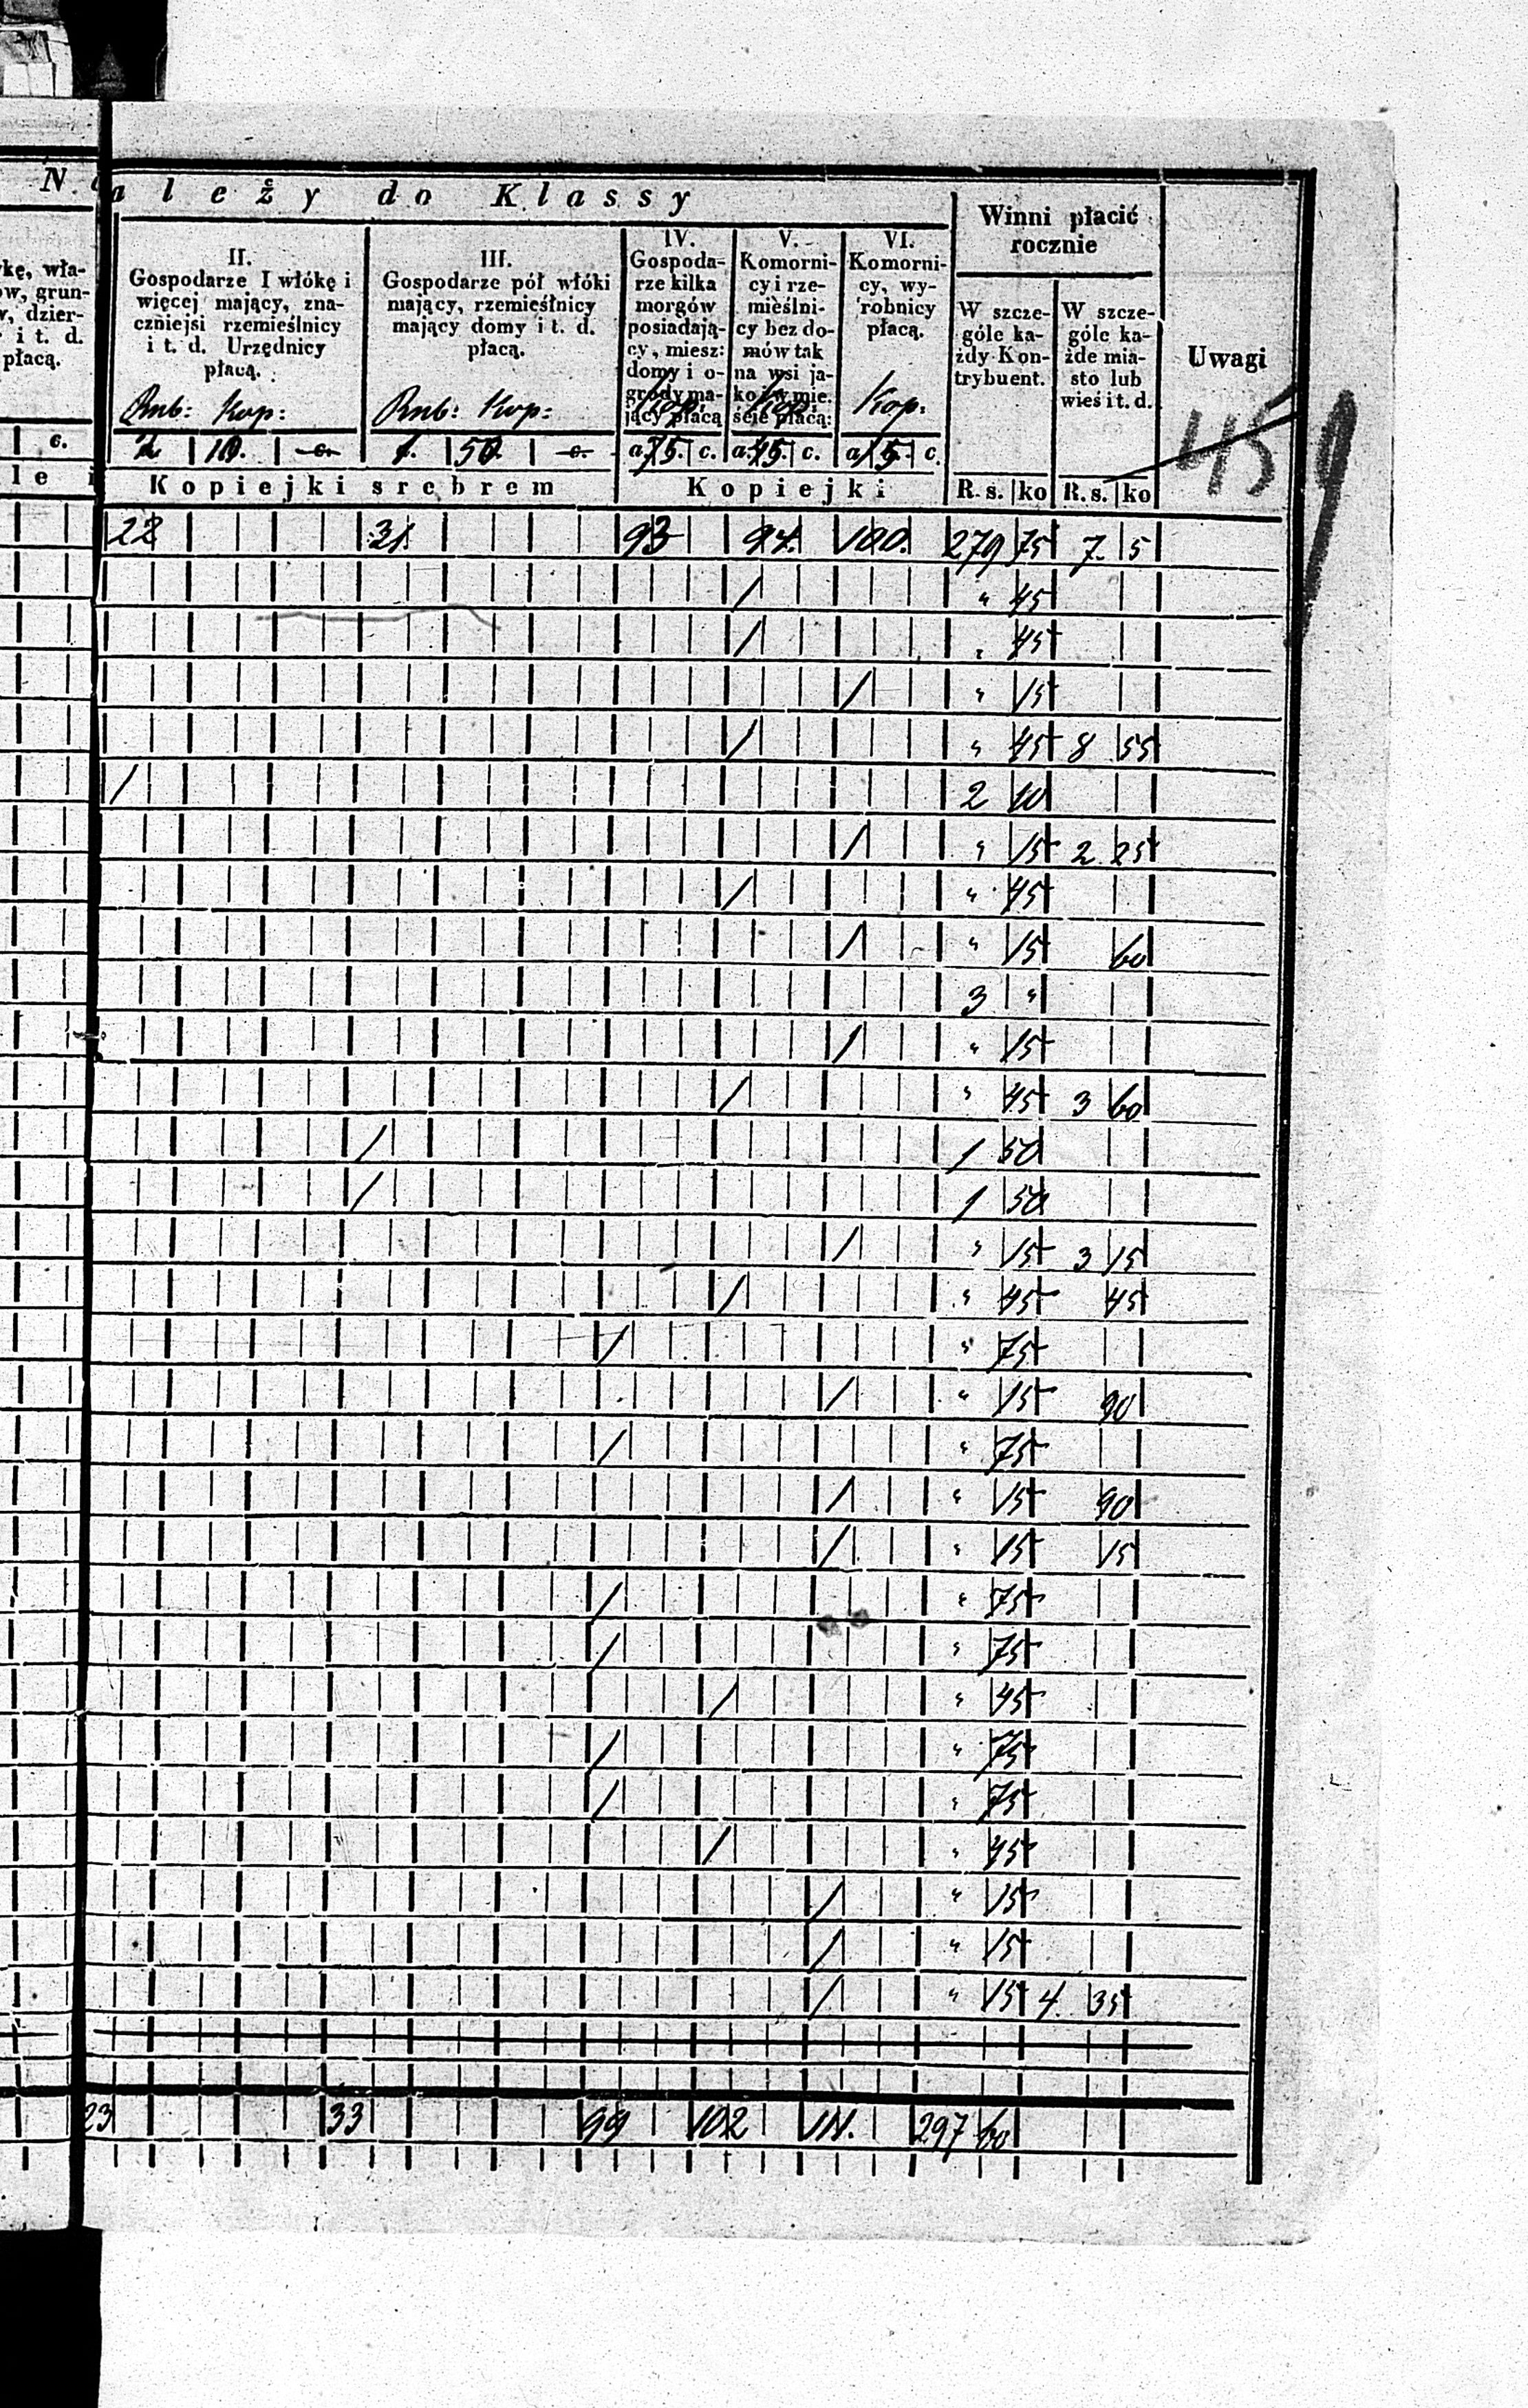 N a l e ż y d o K l a s s y
Winni płacić rocznie
kę, wła-
ów, grun-
w, dzier-
i t. d.
płacą.
c.
l e i
II.
Gospodarze I włókę i
więcej mający, zna-
czniejsi rzemieślnicy
i t. d. Urzędnicy
płacą.
Rub: Kop:
2. 10. c.
III.
Gospodarze pół włóki
mający, rzemieślnicy
mający domy i t. d.
płacą.
Rub: Kop:
1. 50. c.
IV.
Gospoda-
rze kilka
morgów
posiadają-
cy, miesz:
domy i o-
grody ma-
jący płacą
Kop.
a. 75. c.
V.
Komorni-
cy i rze-
mieślni-
cy bez do-
mów tak
na wsi ja-
ko i w mie.
ście płacą:
Kop.
a. 45. c.
VI.
Komorni-
cy, wy-
robnicy
płacą.
Kop:
a. 15. c.
W szcze-
góle ka-
żdy Kon-
trybuent.
W szcze-
góle ka-
żde mia-
sto lub
wieś i t. d.
Uwagi
459
Kopiejki srebrem Kopiejki R. s. ko R. s. ko
22 31. 93 94. 100. 279 75 7. 5
/ " 45
/ " 45
/ " 15
/ " 45 8 55
/ 2 10
/ " 15 2 25
/ " 45
/ " 15 60
3 "
/ " 15
/ " 45 3 60
/ 1 50
/ 1 50
/ " 15 3 15
/ " 45 45
/ " 75
/ " 15 90
/ " 75
/ " 15 90
/ " 15 15
/ " 75
/ " 75
/ " 45
/ " 75
/ " 75
/ " 45
/ " 15
/ " 15
/ " 15 4. 35
23 33 99 102 111. 297 60